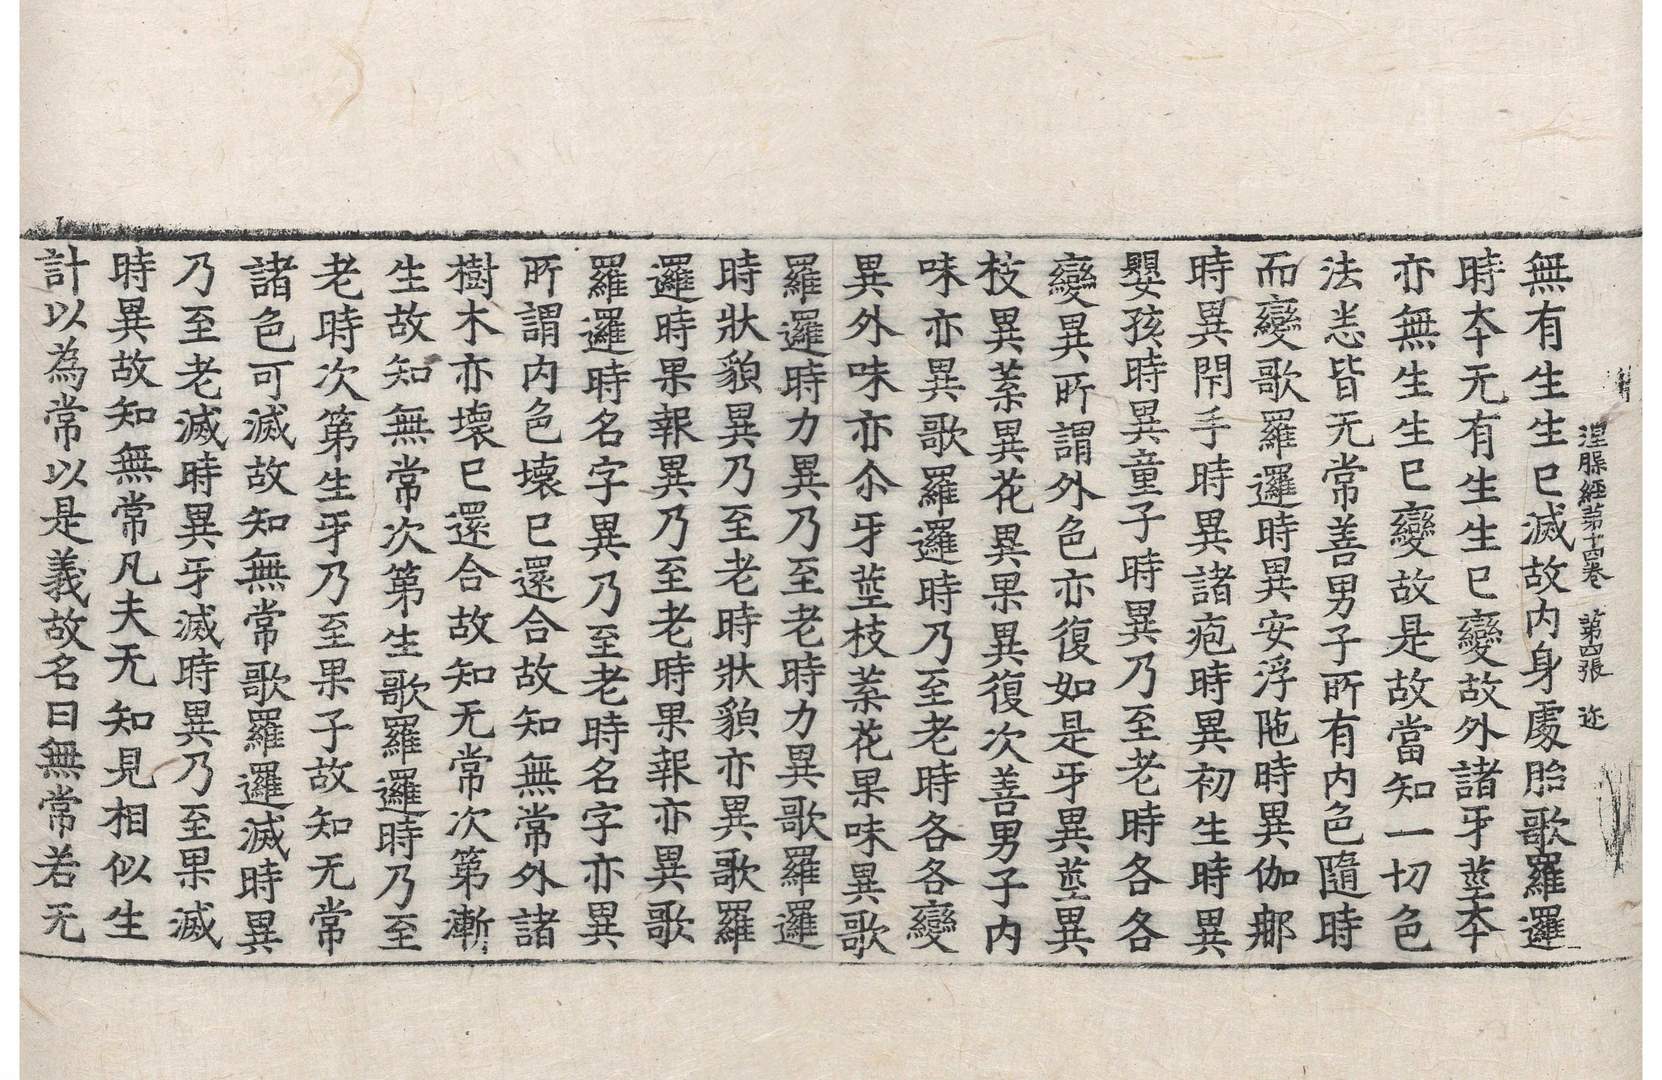 涅槃經第十四卷 第四張 迩
無有生生已滅故内身處胎歌羅邏
時本无有生生已變故外諸牙莖本
亦無生生已變故是故當知一切色
法悉皆无常善男子所有内色隨時
而變歌羅邏時異安浮陁時異伽那
時異閇手時異諸疱時異初生時異
嬰孩時異童子時異乃至老時各各
變異所謂外色亦復如是牙異莖異
枝異葉異花異果異復次善男子内
味亦異歌羅邏時乃至老時各各變
異外味亦尒牙莖枝葉花果味異歌
羅邏時力異乃至老時力異歌羅邏
時狀貌異乃至老時狀貌亦異歌羅
邏時果報異乃至老時果報亦異歌
羅邏時名字異乃至老時名字亦異
所謂内色壞已還合故知無常外諸
樹木亦壞已還合故知无常次第漸
生故知無常次第生歌羅邏時乃至
老時次第生牙乃至果子故知无常
諸色可滅故知無常歌羅邏滅時異
乃至老滅時異牙滅時異乃至果滅
時異故知無常凡夫无知見相似生
計以為常以是義故名曰無常若无